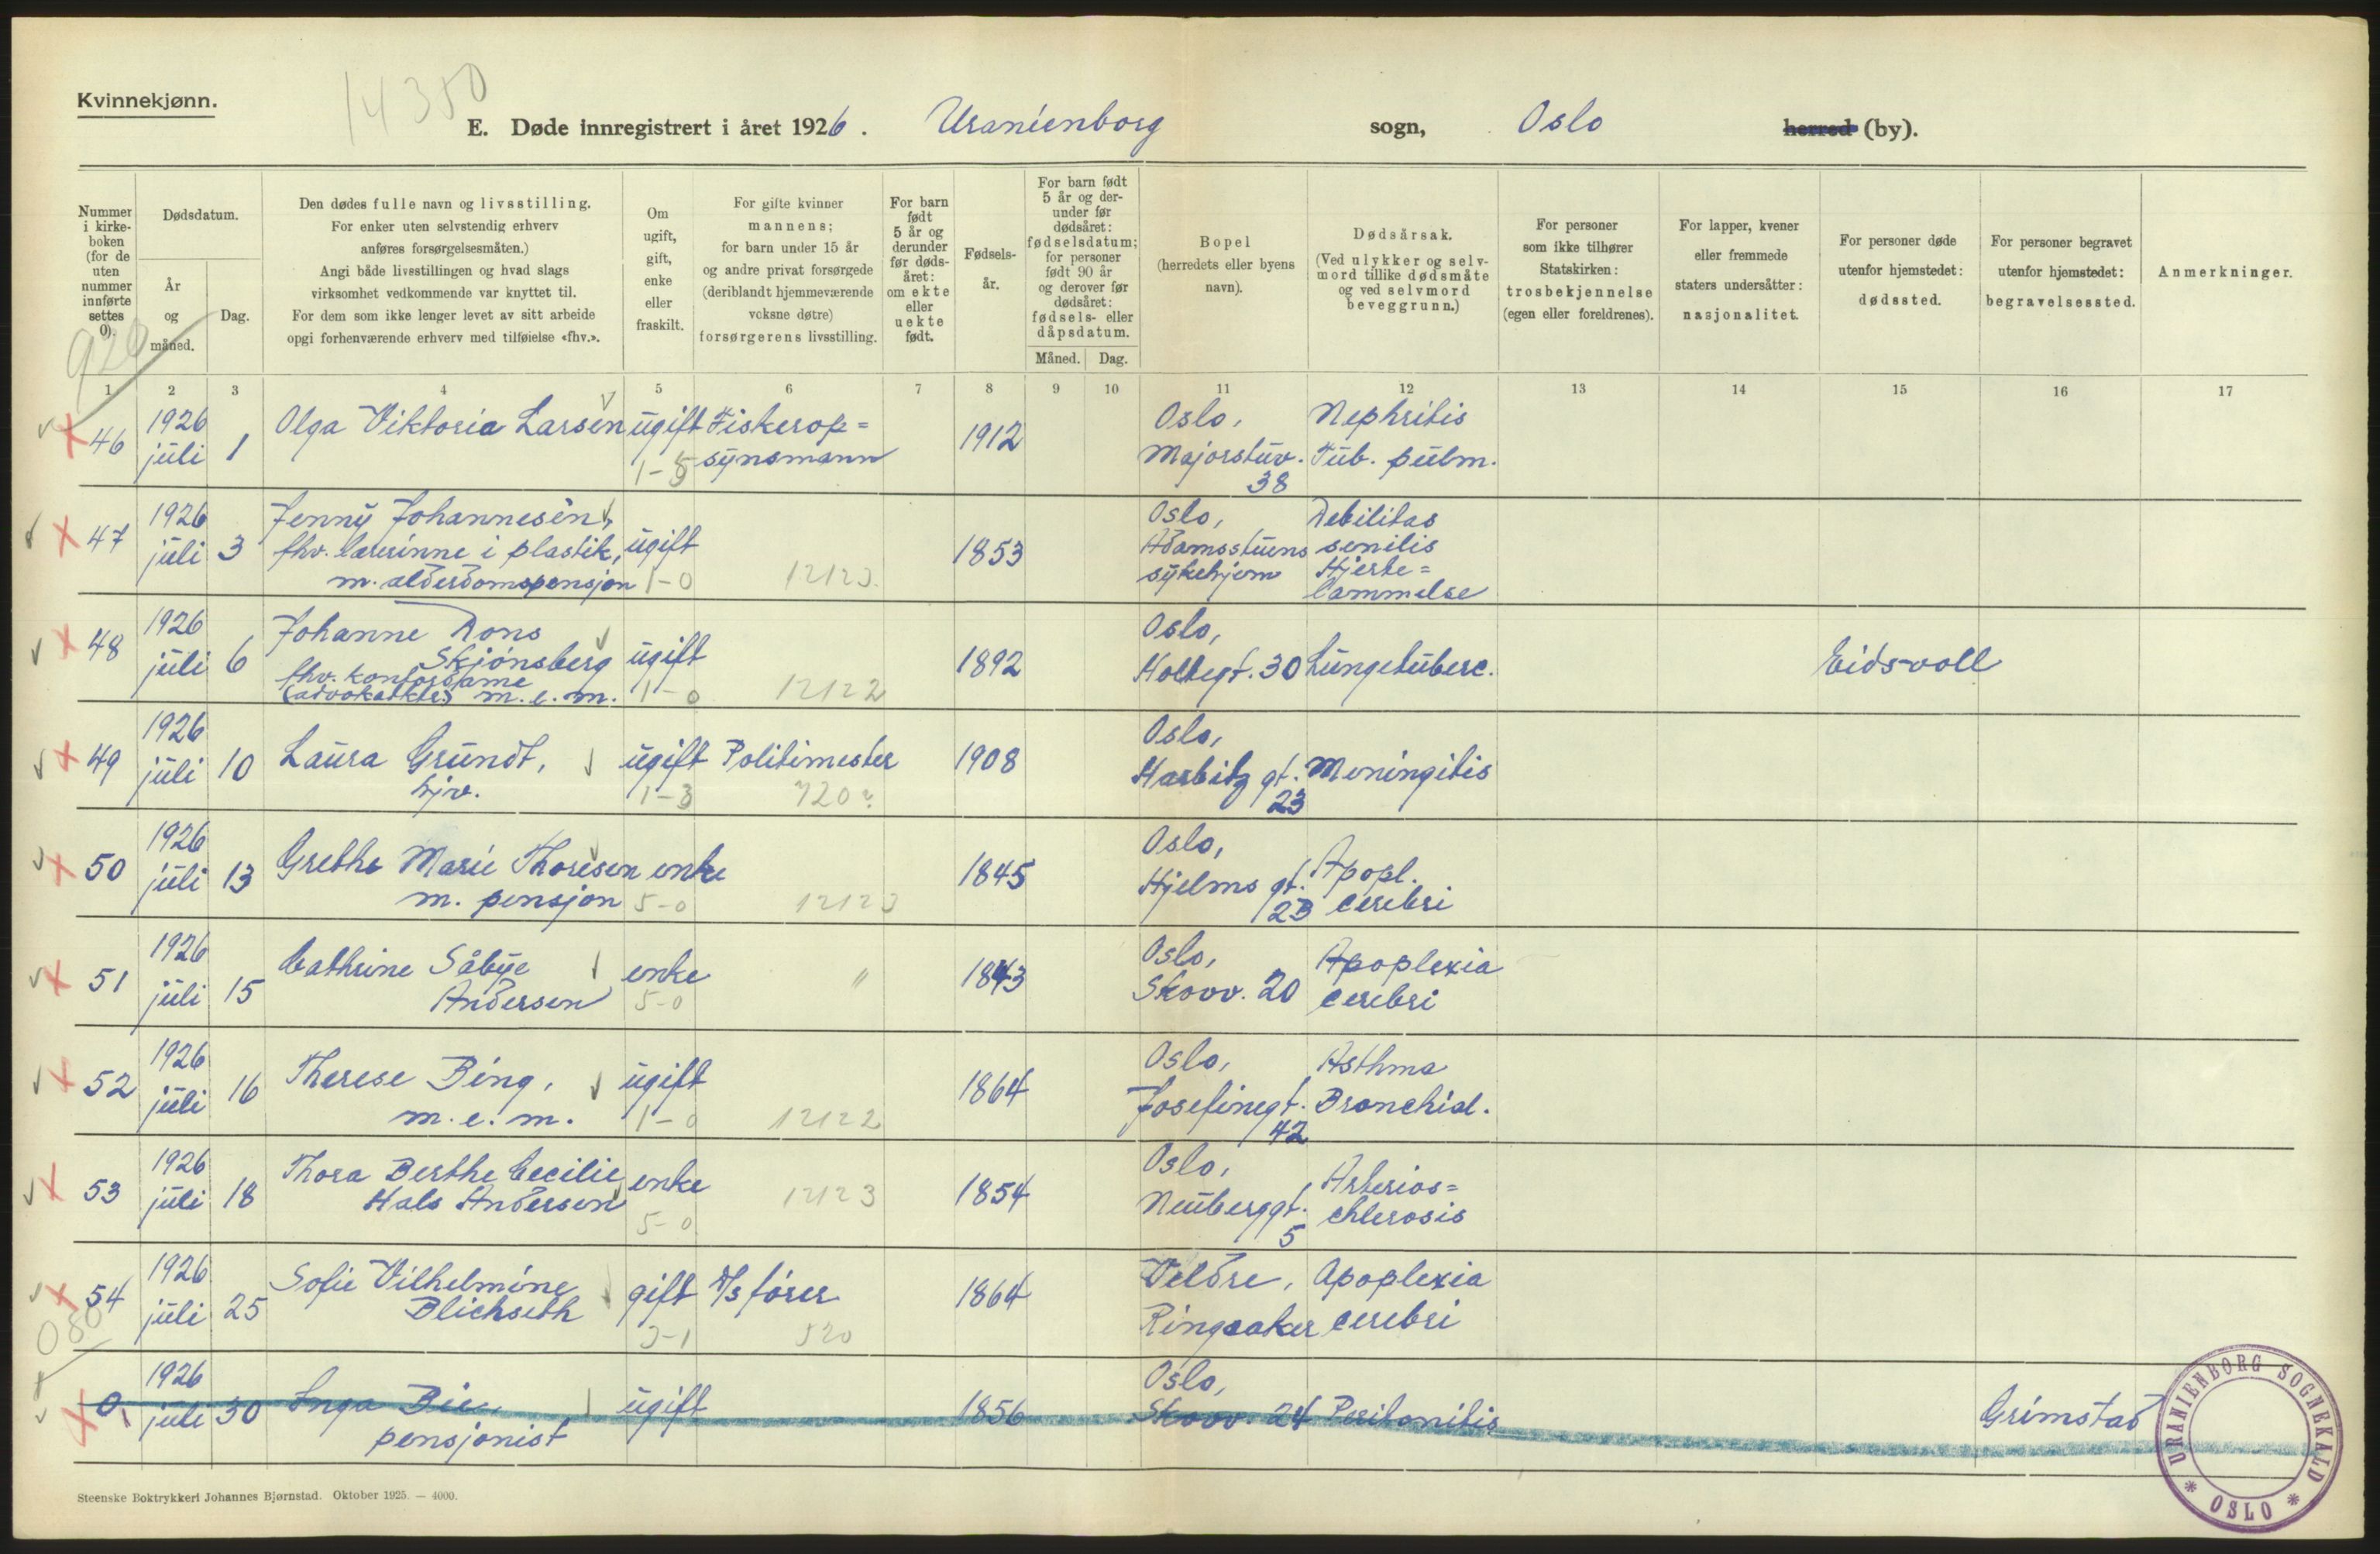 Kvinnekjønn.
14350
E. Døde innregistrert i året 1926. Uranienborg sogn, Oslo herred (by).
Nummer i kirke-boken (for de uten nummer innførte settes 0).
Dødsdatum.
År og måned.
Dag.
Den dødes fulle navn og livsstilling.
For enker uten selvstendig erhverv
anføres forsørgelsesmåten.)
Angi både livsstillingen og hvad slags
virksomhet vedkommende var knyttet til.
For dem som ikke lenger levet av sitt arbeide
opgi forhenværende erhverv med tilføielse «fhv.».
Om
ugift,
gift,
enke
eller
fraskilt.
For gifte kvinner
mannens;
for barn under 15 år
og andre privat forsørgede
(deriblandt hjemmeværende
voksne døtre)
forsørgerens livsstilling.
For barn
født
5 år og
derunder
før døds-
året:
om ekte
eller
uekte
født.
Fødsels-
år.
For barn født
5 år og der-
under før
dødsåret:
fødselsdatum;
for personer
født 90 år
og derover før
dødsåret:
fødsels- eller
dåpsdatum.
Måned. Dag.
Bopel
(herredets eller byens
navn).
Dødsårsak.
(Ved ulykker og selv-
mord tillike dødsmåte
og ved selvmord
beveggrunn.)
For personer
som ikke tilhører
Statskirken:
trosbekjennelse
(egen eller foreldrenes).
For lapper, kvener
eller fremmede
staters undersåtter:
nasjonalitet.
For personer døde
utenfor hjemstedet:
dødssted.
For personer begravet
utenfor hjemstedet:
begravelsessted.
Anmerkninger.
1 2 3 4 5 6 7 8 9 10 11 12 13 14 15 16 17
46 1926 juli 1 Olga Viktoria Larsen ugift Fiskerop=
synsmann 1912 Oslo, Majorstuv. 38 Nephritis
Tub. pulm.
1-3
47 1926 juli 3 Jenny Johannesen,
fhv. lærerinne i plastik,
m. alderdomspensjon
ugift 1-0 12123 1853 Oslo,
Adamsstuens
sykehjem
Debilitas
senilis
Hjerte=
lammelse
48 1926 juli 6 Johanne Dons
Skjønsberg
fhv. kontordame
(advokatktr) m.e.m.
ugift 1-0 12122 1892 Oslo,
Holtegt. 30 Lungetuberc. Eidsvoll
49 1926 juli 10 Laura Grundt,
hjv.
ugift 1-3 Politimester 720 1908 Oslo,
Harbitz gt.
23
Meningitis
50 1926 juli 13 Grethe Marie Thoresen
m. pensjon
enke 5-0 12123 1845 Oslo,
Hjelms gt.
23
Apopl.
cerebri
51 1926 juli 15 Cathrine Såbye
Andersen
enke 5-0 " 1843 Oslo,
Skovv. 20
Apoplexia
cerebri
52 1926 juli 16 Therese Bing,
m.e.m.
ugift 1-0 12122 1864 Oslo,
Josefinegt.
42
Asthma
Bronchial.
53 1926 juli 18 Thora Berthe Cecilie
Hals Andersen
enke 5-0 12123 1854 Oslo,
Neuberggt.
5
Arterios=
chlerosis
54 1926 juli 25 Sofie Vilhelmine
Blichseth
gift D/s fører 520 1864 Veldre,
Ringsaker
Apoplexia
cerebri
0, 1926 juli 30 Inga Bie,
pensjonist
ugift 1856 Oslo,
Skovv. 24 Peritonitis Grimstad
URANIENBORG SOGNEKALD * OSLO *
Steenske Boktrykkeri Johannes Bjørnstad. Oktober 1925. — 4000.